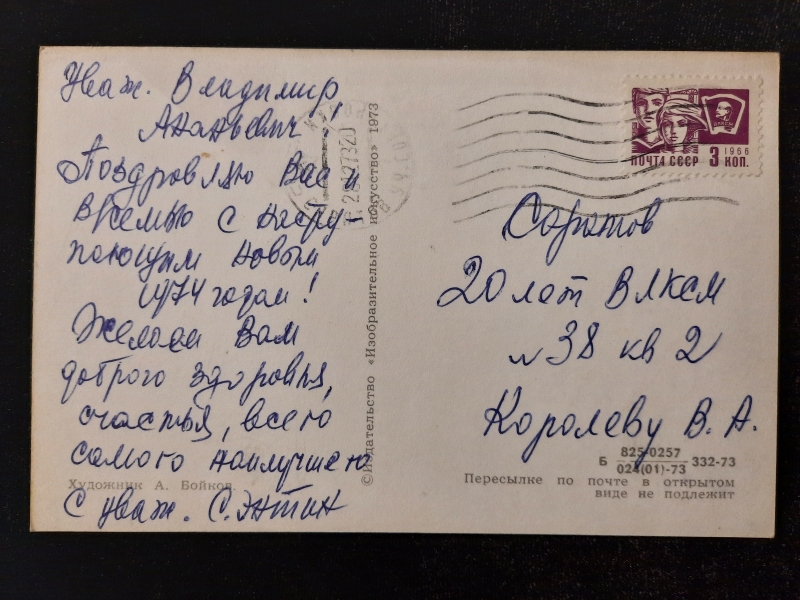 Уваж. Владимир
Ананьевич!
Поздравляю Вас и
всемью с насту
пающим новым
1974 годом!
Желаем Вам
доброго здоровья,
счастья, всего
самого наилучшего
С уваж. С. Энтин
Художник А. Бойков.
© Издательство «Изобразительное искусство» 1973
ВЛКСМ
1966
ПОЧТА СССР 3 КОП.
Саратов
20 лет ВЛКСМ
N 38 кв 2
Королеву В. А.
Б 825-0257 332-73
024(01)-73
Пересылке по почте в открытом
виде не подлежит